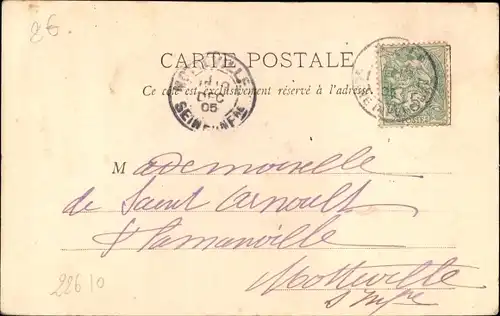 26
CARTE POSTALE
Ce côté est exclusivement réservé à l'adresse.
DEC
05
SEINE-INFRE
Mademoiselle
de Saint Arnoult
Flamanville
Motteville
S Infre
22610